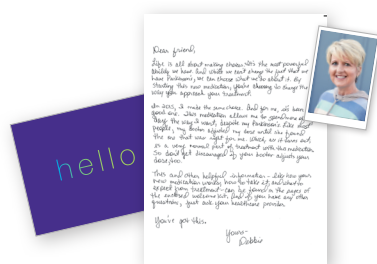 hello
Dear friend,
Life is all about making choices. It's the most powerful
ability we have. And while we can't change the fact that we
have Parkinson's, we can choose what we do about it. By
starting this new medication, you're choosing to change the
way you approach your treatment.
In 2015, I made the same choice. And for me, it's been a
good one. This medication allows me to spend more of
my days the way I want, despite my Parkinson's. Like most
people, my doctor adjusted my dose until she found
the one that was right for me. Which, as it turns out,
is a very normal part of treatment with this medication.
So don't get discouraged if your doctor adjusts your
dose, too.
This and other helpful information – like how your
new medication works, how to take it, and what to
expect from treatment – can be found in the pages of
the enclosed welcome kit. And if you have any other
questions, just ask your healthcare provider.
You've got this.
Yours–
Debbie